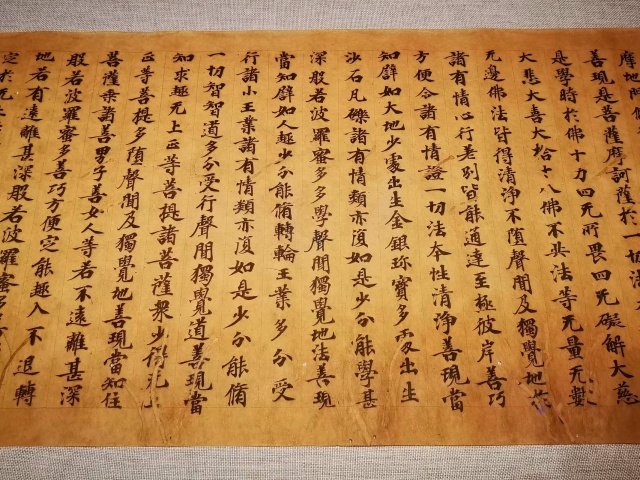 摩地門
善現是菩薩摩訶薩於一切法
是學時於佛十力四无所畏四无礙解大慈
大悲大喜大捨十八佛不共法等无量无數
无邊佛法皆得清淨不墮聲聞及獨覺地
諸有情心行差別皆能通達至極彼岸善巧
方便令諸有情證一切法本性清淨善現當
知譬如大地少處出生金銀珎寶多處出生
沙石瓦礫諸有情類亦復如是少分能學甚
深般若波羅蜜多多學聲聞獨覺地法善現
當知譬如人趣少分能脩轉輪王業多分受
行諸小王業諸有情類亦復如是少分能脩
一切智智道多分受行聲聞獨覺道善現當
知求趣无上正等菩提諸菩薩衆少得无上
正等菩提多墮聲聞及獨覺地善現當知住
菩薩乘諸善男子善女人等若不遠離甚深
般若波羅蜜多善巧方便定能趣入不退轉
地若有遠離甚深般若波羅蜜多
定於无